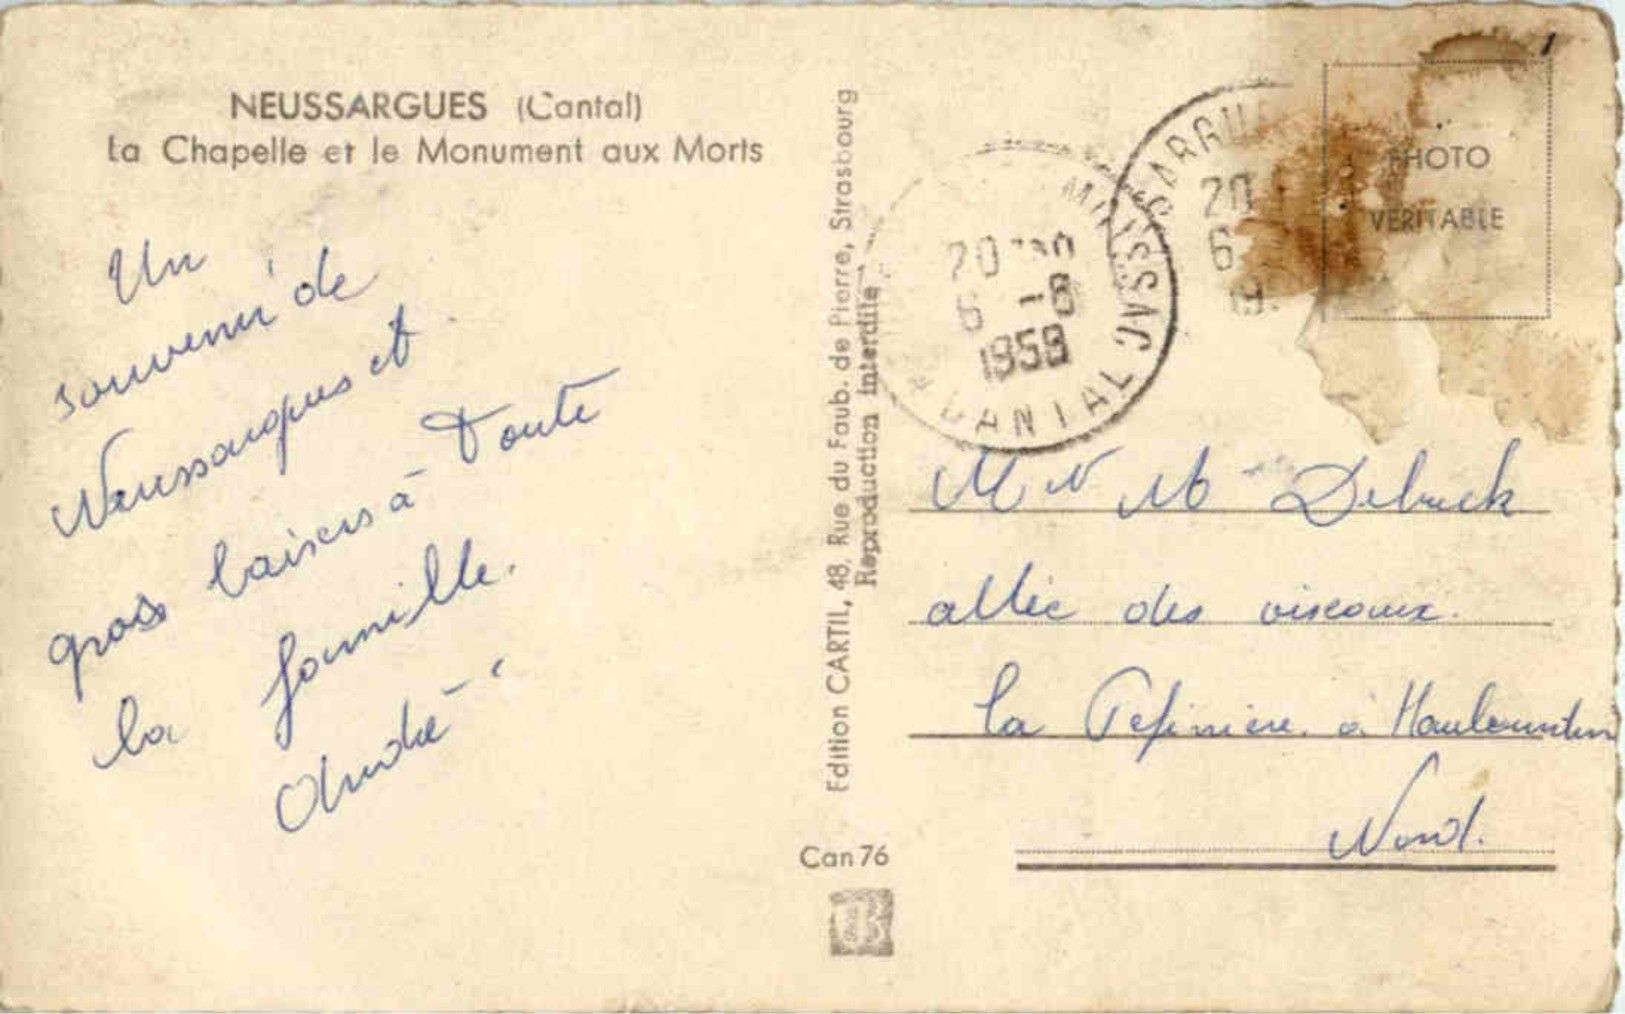 NEUSSARGUES (Cantal)
La Chapelle et le Monument aux Morts
Un
souvenir de
Neussargues et
gros baisers à toute
la famille.
André
Edition CARTIL, 48, Rue du Faub. de Pierre, Strasbourg
Reproduction Interdite
Can 76
PHOTO
VERITABLE
20 30
6 -8
1958
CANTAL
20
6
19
Debuck
allée des oiseaux.
La Pepinière à Haubourdin
Nord.